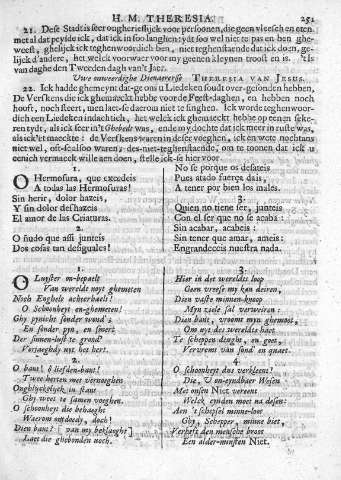 H. M. THERESIA. 251
21. Dese Stadt is seer ongherieflijck voor persoonen, die geen vleesch en eten
met al dat peyse ick, dat ick in soo langhen tydt soo wel niet te pas en ben ghe-
weest, ghelijck ick teghenwoordich ben, niet teghenstaende dat ick doen, ge-
lijck d'andere, het welck voorwaer voor my geenen kleynen troost en is. 't Is
van daghe den Tweeden dagh van't Jaer.
Uwe onweerdighe Dienaeresse THERESIA VAN JESUS.
22. Ick hadde ghemeynt dat ge ons u Liedeken soudt over-gesonden hebben.
De Versen die ick ghemaeckt hebbe voor de Feest-daghen, en hebben noch
hooft, noch steert, men laet-se daerom niet te singhen. Ick worde teghenwoor-
dich een Liedeken indachtich, het welck ick ghemaeckt hebbe op eenen seke-
ren tydt, als ick seer in't Ghebedt was, ende my dochte dat ick meer in ruste was,
als ick't selve maeckte: de Versen waren in deser voeghen, ick en wete nochtans
niet wel, oft-se alsoo waren; des-niet-teghenstaende, om te toonen dat ick u
eenich vermaeck wille aen doen, stelle ick-se hier voor
1.
O Hermosura, que excedeis
A todas las Hermosuras!
Sin herir, dolor hazeis,
Y sin dolor deshazeis
El amor de las Criaturas.
2.
O ñudo que assi junteis
Dos cosas tan desiguales!
No se porque os desateis
Pues atado fuerça dais,
A tener por bien los males.
3.
Quien no tiene ser, junteis
Con el ser que no se acaba:
Sin acabar, acabeis:
Sin tener que amar, ameis:
Engrandeceis nuestra nada.
1.
O Luyster on-bepaelt
Van werelde noyt ghemeten
Noch Enghele achterhaelt!
O Schoonheyt en-ghemeten!
Ghy pynicht sonder wond'
En sonder pyn, en smert
Der sinnen-lust te grond'
Verjaeghdy uyt het hert.
2.
O bant! ô liefden-bant!
Twee herten met vernoeghen
Onghelyckelyck in stant
Ghy weet te samen voeghen.
O schoonheyt die behaeght
Waerom ontdoedy, doch!
Dien bant? [van my beklaeght]
Laet die ghebonden noch.
3.
Hier in des wereldts loop
Geen vreese my kan deiren,
Dien vaste minnen-knoop
Myn ziele sal verweiren:
Dien bant, vroom myn ghemoet,
Om uyt des werelts haet
Te scheppen deught, en goet,
Verwerns van sond' en quaet.
4.
O schoonheyt dus verkleent!
Die, U on-eyndbaer Wesen
Met onsen Niet vereent
Welck eynden moet na desen:
Aen 't schepsel minne-loos
Ghy, Schepper, minne biet,
Verheft den mensche broos
Een alder-minsten Niet.